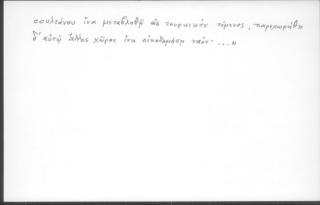 σουλτάνου ἵνα μεταβληθῇ εἰς τουρκικὸν τέμενος, παρεχωρήθη
δ' αὐτῷ ἄλλος χῶρος ἵνα οἰκοδομήσῃ ναόν· ..."